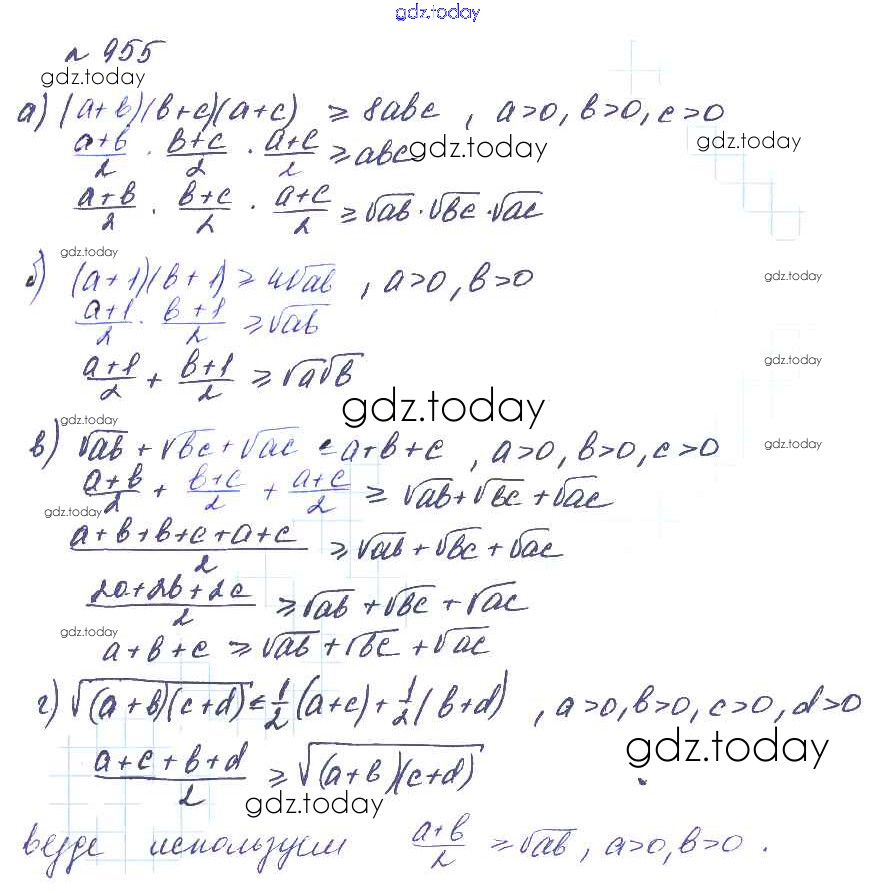 gdz.today
№ 955
gdz.today
а) (a+b)(b+c)(a+c) ≥ 8abc , a>0, b>0, c>0
(a+b)/2 · (b+c)/2 · (a+c)/2 ≥ abc gdz.today
(a+b)/2 · (b+c)/2 · (a+c)/2 ≥ √ab · √bc · √ac
gdz.today
б) (a+1)(b+1) ≥ 4√ab , a>0, b>0 gdz.today
(a+1)/2 · (b+1)/2 ≥ √ab
(a+1)/2 + (b+1)/2 ≥ √a√b gdz.today
gdz.today
gdz.today
в) √ab + √bc + √ac ≤ a+b+c , a>0, b>0, c>0 gdz.today
(a+b)/2 + (b+c)/2 + (a+c)/2 ≥ √ab + √bc + √ac
gdz.today
(a+b+b+c+a+c)/2 ≥ √ab + √bc + √ac
(2a+2b+2c)/2 ≥ √ab + √bc + √ac
gdz.today
a+b+c ≥ √ab + √bc + √ac
г) √((a+b)(c+d)) ≤ 1/2 (a+c) + 1/2 (b+d) , a>0, b>0, c>0, d>0
gdz.today
(a+c+b+d)/2 ≥ √((a+b)(c+d)) gdz.today
gdz.today
везде используем (a+b)/2 ≥ √ab , a>0, b>0 .